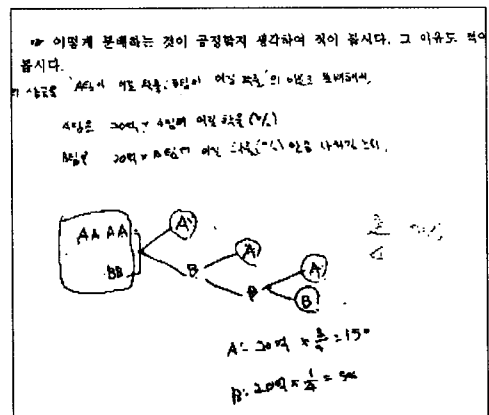 ☞ 어떻게 분배하는 것이 공정한지 생각하여 적어 봅시다. 그 이유도 적어
봅시다.
상금을 'A팀이 이길 확률:B팀이 이길 확률'의 비율로 분배해서,
A팀은 20억 × A팀이 이길 확률(%)
B팀은 20억 × B팀이 이길 확률(%) 만큼 나눠가진다.
AAAA
BB
A
B
A
B
A
B
A: 20억 × 3/4 = 15억
B: 20억 × 1/4 = 5억